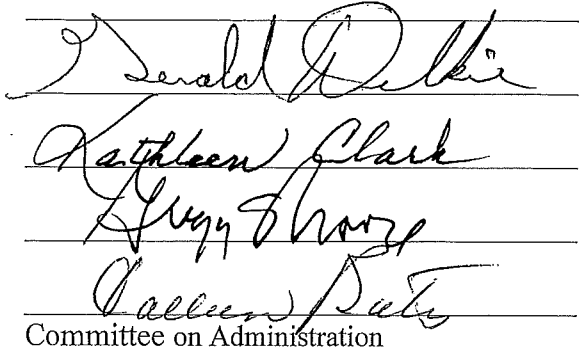 Gerald Wilkie
Kathleen Clark
Gregg Moore
Colleen Bates
Committee on Administration